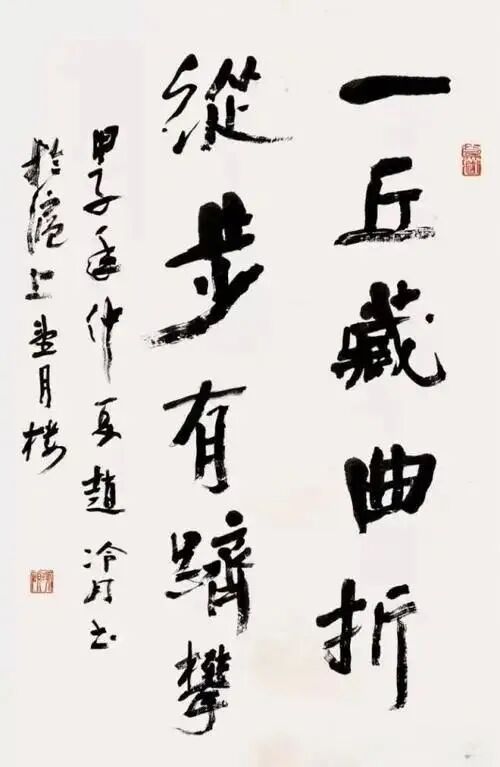 一丘藏曲折
縱步有躋攀
甲子年仲夏趙冷月書
於滬上望月樓